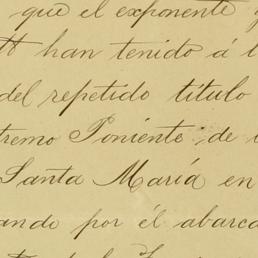 que el exponente y
han tenido á l
del repetido título
tremo Poniente de
Santa María en
ando por él abarca